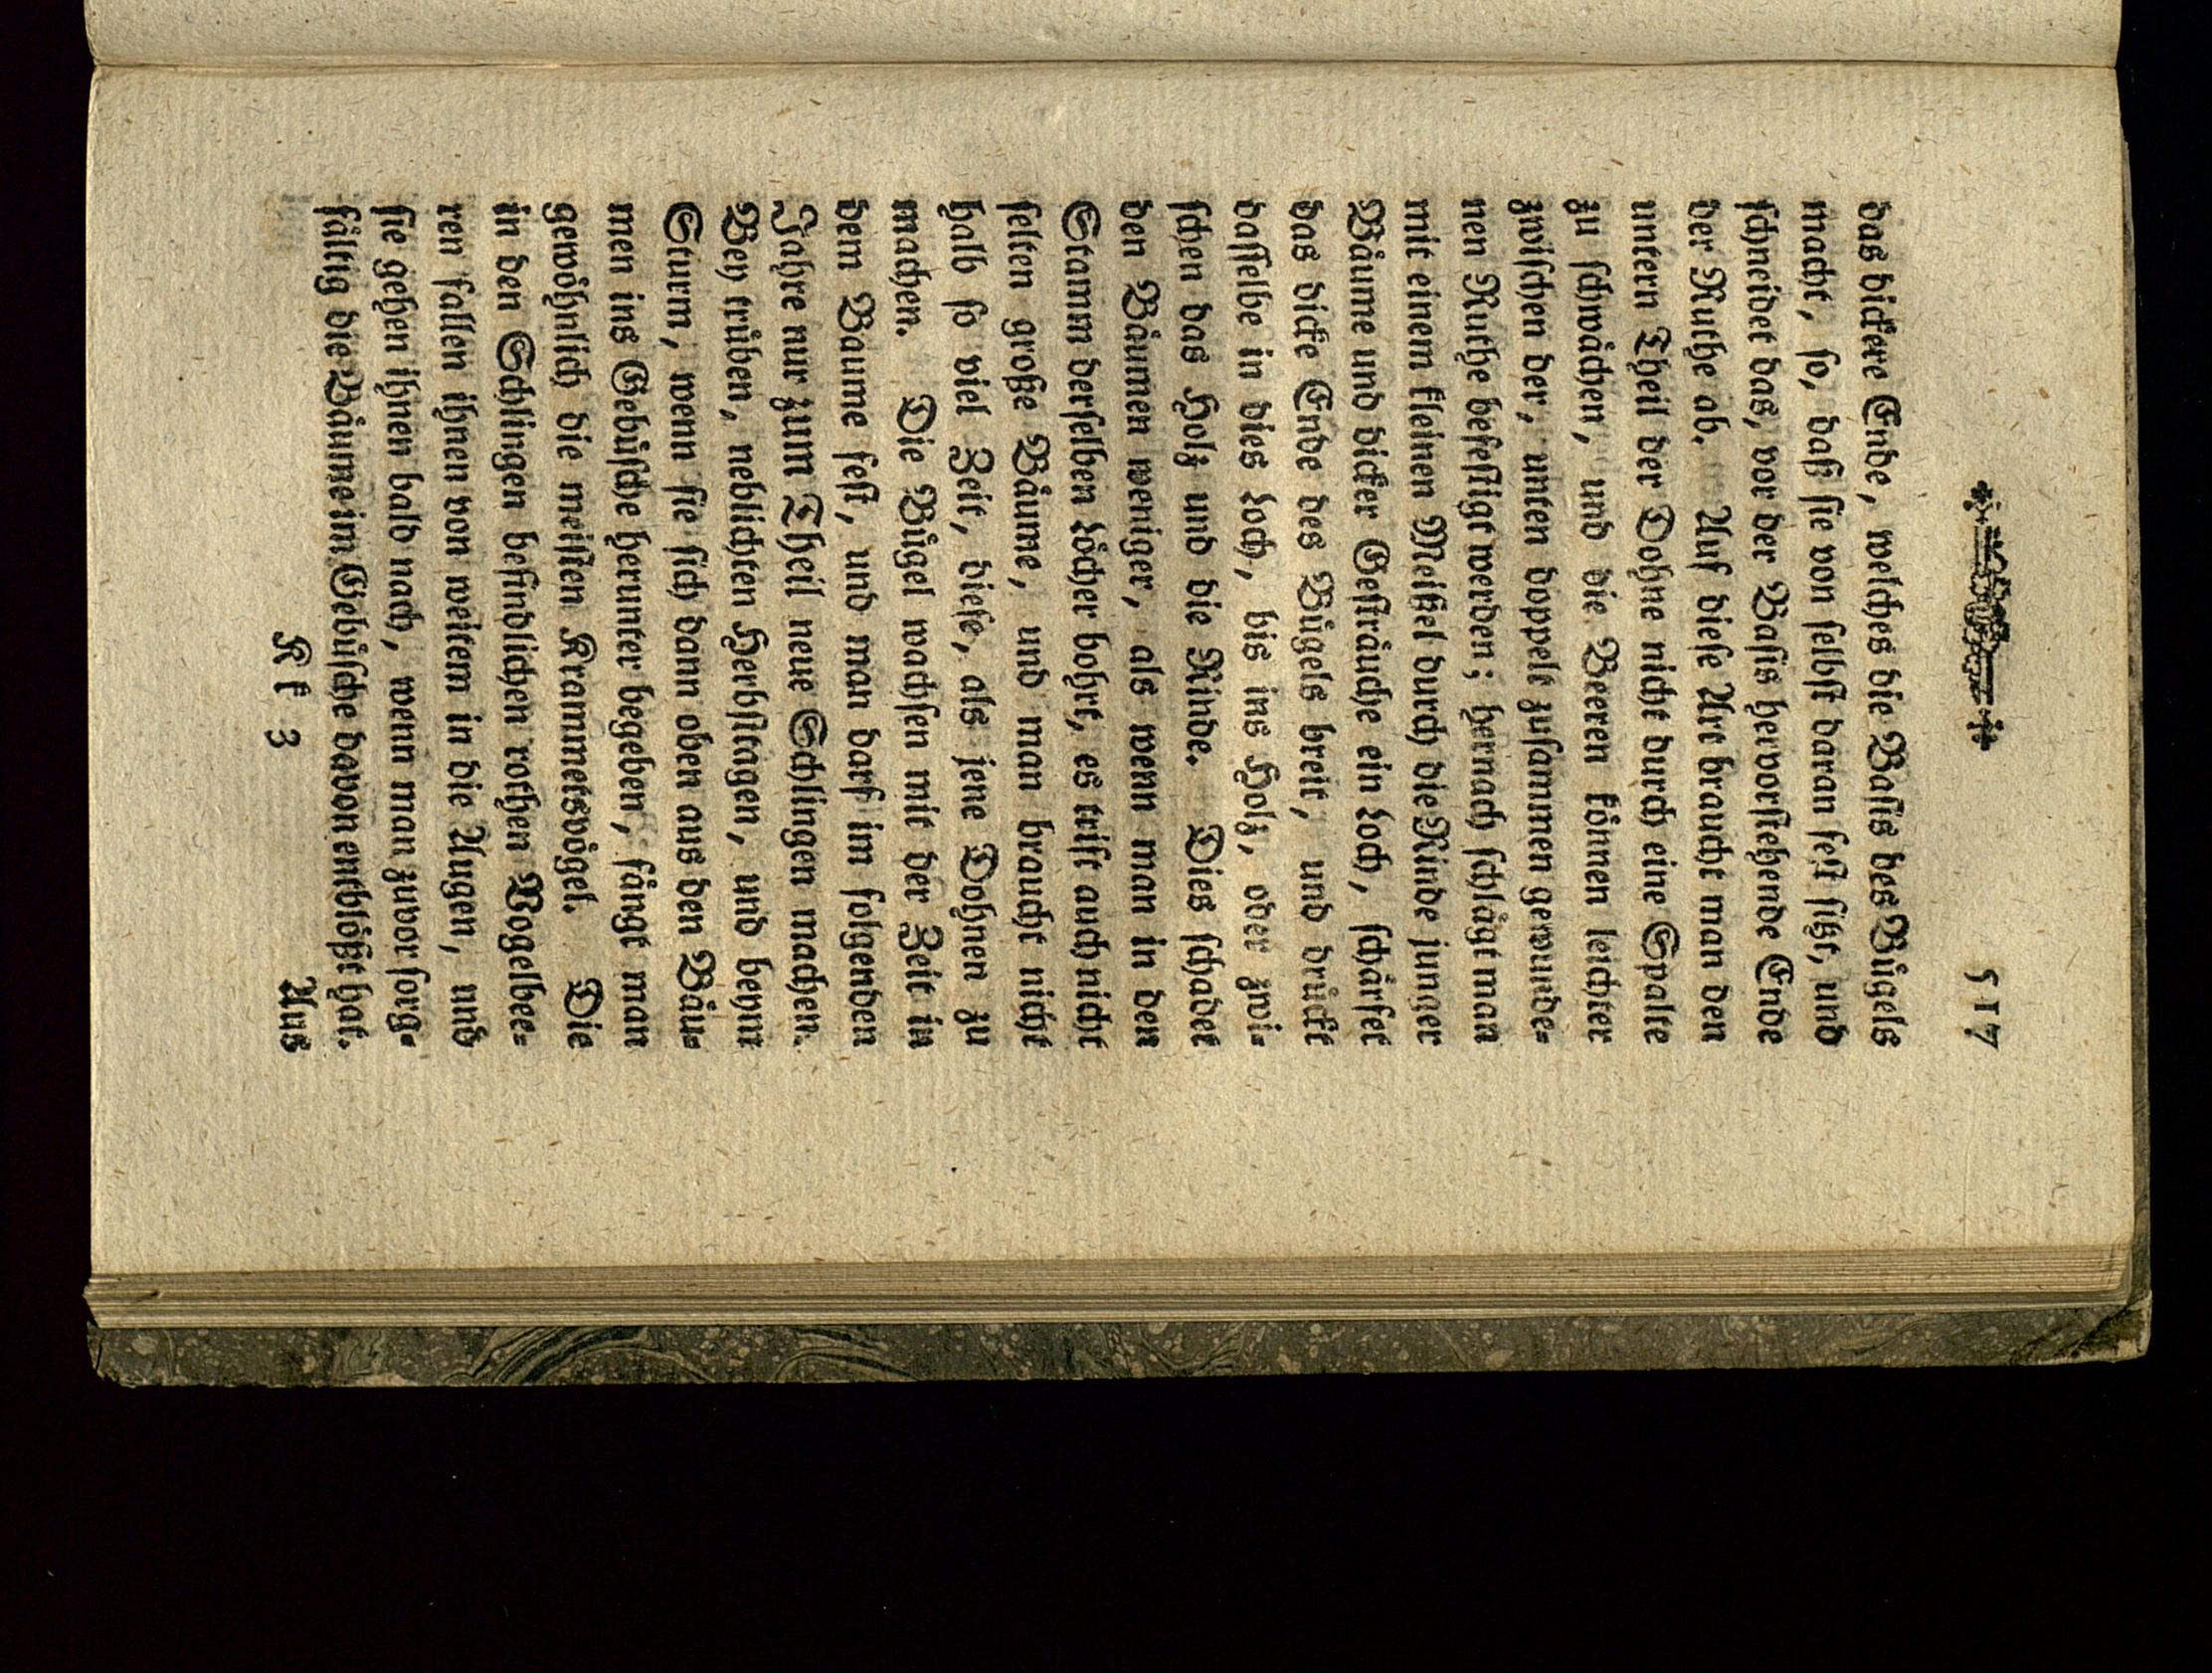 517
das dickere Ende, welches die Basis des Bügels
macht, so, daß sie von selbst daran fest sitzt, und
schneidet das, vor der Basis hervorstehende Ende
der Ruthe ab. Auf diese Art braucht man den
untern Theil der Dohne nicht durch eine Spalte
zu schwächen, und die Beeren können leichter
zwischen der, unten doppelt zusammen gewunde-
nen Ruthe befestigt werden; hernach schlägt man
mit einem kleinen Meißel durch die Rinde junger
Bäume und dicker Gesträuche ein Loch, schärfet
das dicke Ende des Bügels breit, und drückt
dasselbe in dies Loch, bis ins Holz, oder zwi-
schen das Holz und die Rinde. Dies schadet
den Bäumen weniger, als wenn man in den
Stamm derselben Löcher bohrt, es trift auch nicht
selten große Bäume, und man braucht nicht
halb so viel Zeit, diese, als jene Dohnen zu
machen. Die Bügel wachsen mit der Zeit in
dem Baume fest, und man darf im folgenden
Jahre nur zum Theil neue Schlingen machen.
Bey trüben, neblichten Herbsttagen, und beym
Sturm, wenn sie sich dann oben aus den Bäu-
men ins Gebüsche herunter begeben, fängt man
gewöhnlich die meisten Krammetsvögel. Die
in den Schlingen befindlichen rothen Vogelbee-
ren fallen ihnen von weitem in die Augen, und
sie gehen ihnen bald nach, wenn man zuvor sorg-
fältig die Bäume im Gebüsche davon entblößt hat.
Kk 3 Aus